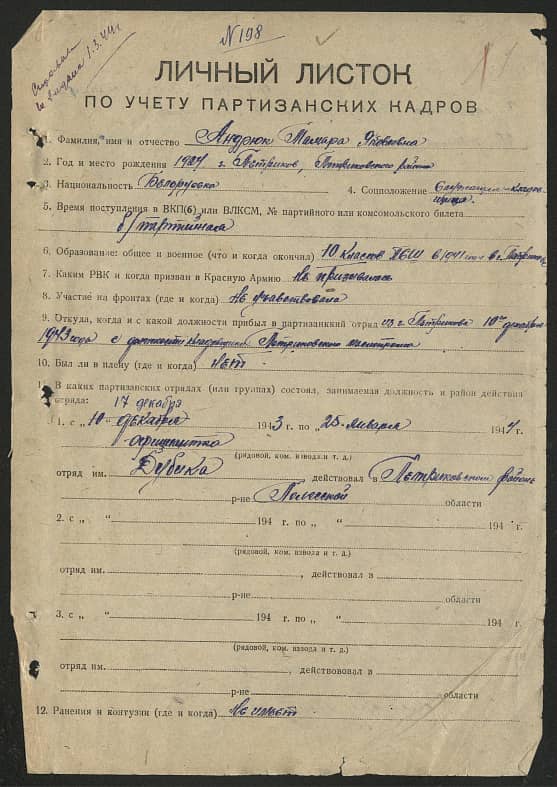 №198
1.3.44г.
ЛИЧНЫЙ ЛИСТОК
ПО УЧЕТУ ПАРТИЗАНСКИХ КАДРОВ
1. Фамилия, имя и отчество Андрюк Тамара Яковлевна
2. Год и место рождения 1924 г. Петриков, Петриковского района
3. Национальность Белорусска 4. Соцположение
5. Время поступления в ВКП(б) или ВЛКСМ, № партийного или комсомольского билета
б/партийная
6. Образование: общее и военное (что и когда окончил) 10 классов в 1941 году в г. Петриков
7. Каким РВК и когда призван в Красную Армию Не призывалась
8. Участие на фронтах (где и когда) Не участвовала
9. Откуда, когда и с какой должности прибыл в партизанкий отряд из г. Петрикова 10го декабря
1943 года с должности Петриковского
10. Был ли в плену (где и когда) Нет
11. В каких партизанских отрядах (или группах) состоял, занимаемая должность и район действия
отряда: 17 декабря
1. с „10 декабря 1943 г. по „25 января 1944 г.
(рядовой, ком. взвода и т. д.)
отряд им. Бубика действовал в Петриковском районе
р-не Полесской области
2. с „ “ 194 г. по „ “ 194 г.
(рядовой, ком. взвода и т. д.)
отряд им. , действовал в
р-не области
3. с „ “ 194 г. по „ “ 194 г.
(рядовой, ком. взвода и т. д.)
отряд им. , действововал в
р-не области
12. Ранения и контузии (где и когда) Не имеет